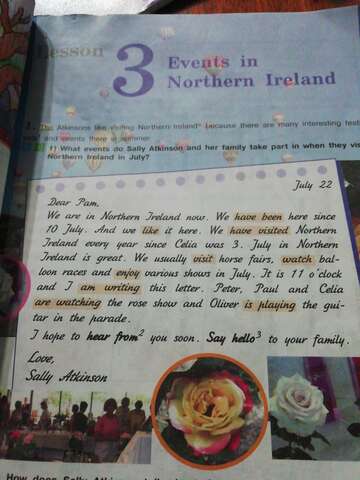 Lesson
3
Events in
Northern Ireland
The Atkinsons like visiting Northern Ireland* because there are many interesting
and events there in summer.
1) What events do Sally Atkinson and her family take part in when they
Northern Ireland in July?
July 22
Dear Pam,
We are in Northern Ireland now. We have been here since
10 July. And we like it here. We have visited Northern
Ireland every year since Celia was 3. July in Northern
Ireland is great. We usually visit horse fairs, watch bal-
loon races and enjoy various shows in July. It is 11 o'clock
and I am writing this letter. Peter, Paul and Celia
are watching the rose show and Oliver is playing the gui-
tar in the parade.
I hope to hear from² you soon. Say hello³ to your family.
Love,
Sally Atkinson
How does Sally Atkinson